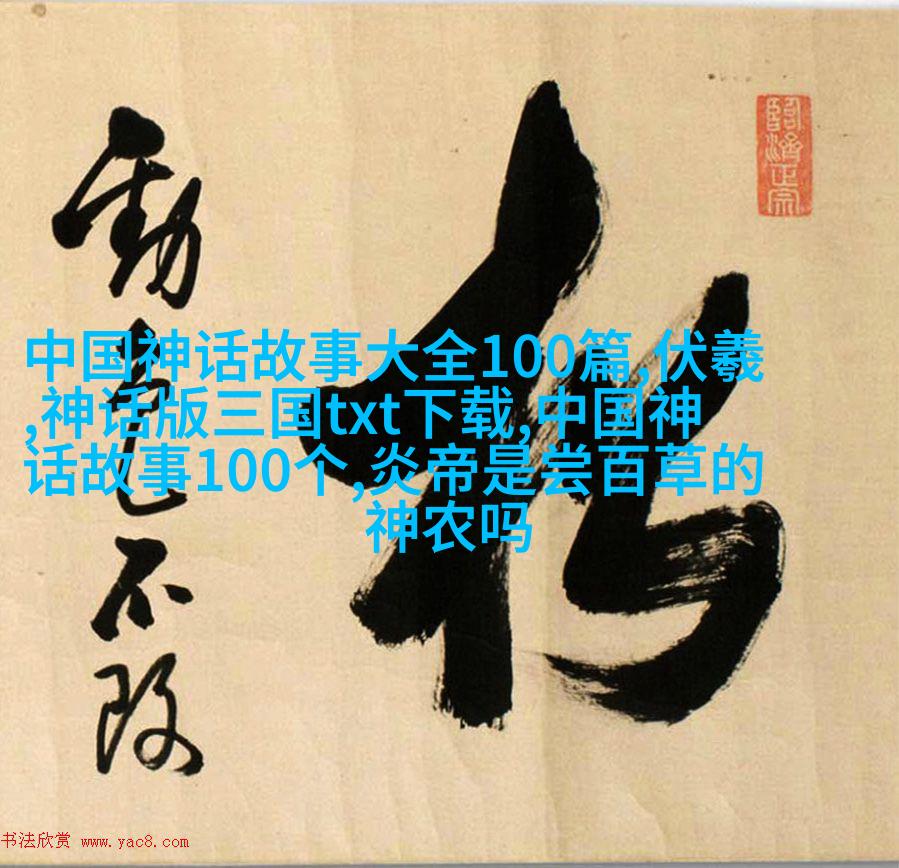 臨濟正宗
松
勁色不改
中国神话故事大全100篇,伏羲
,神话版三国txt下载,中国神
话故事100个,炎帝是尝百草的
神农吗
书法欣赏 www.yac8.com